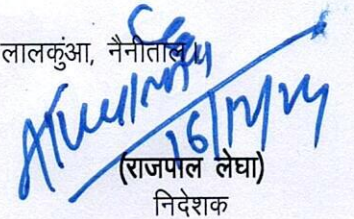 लालकुंआ, नैनीताल।
16/12/24
(राजपाल लेघा)
निदेशक